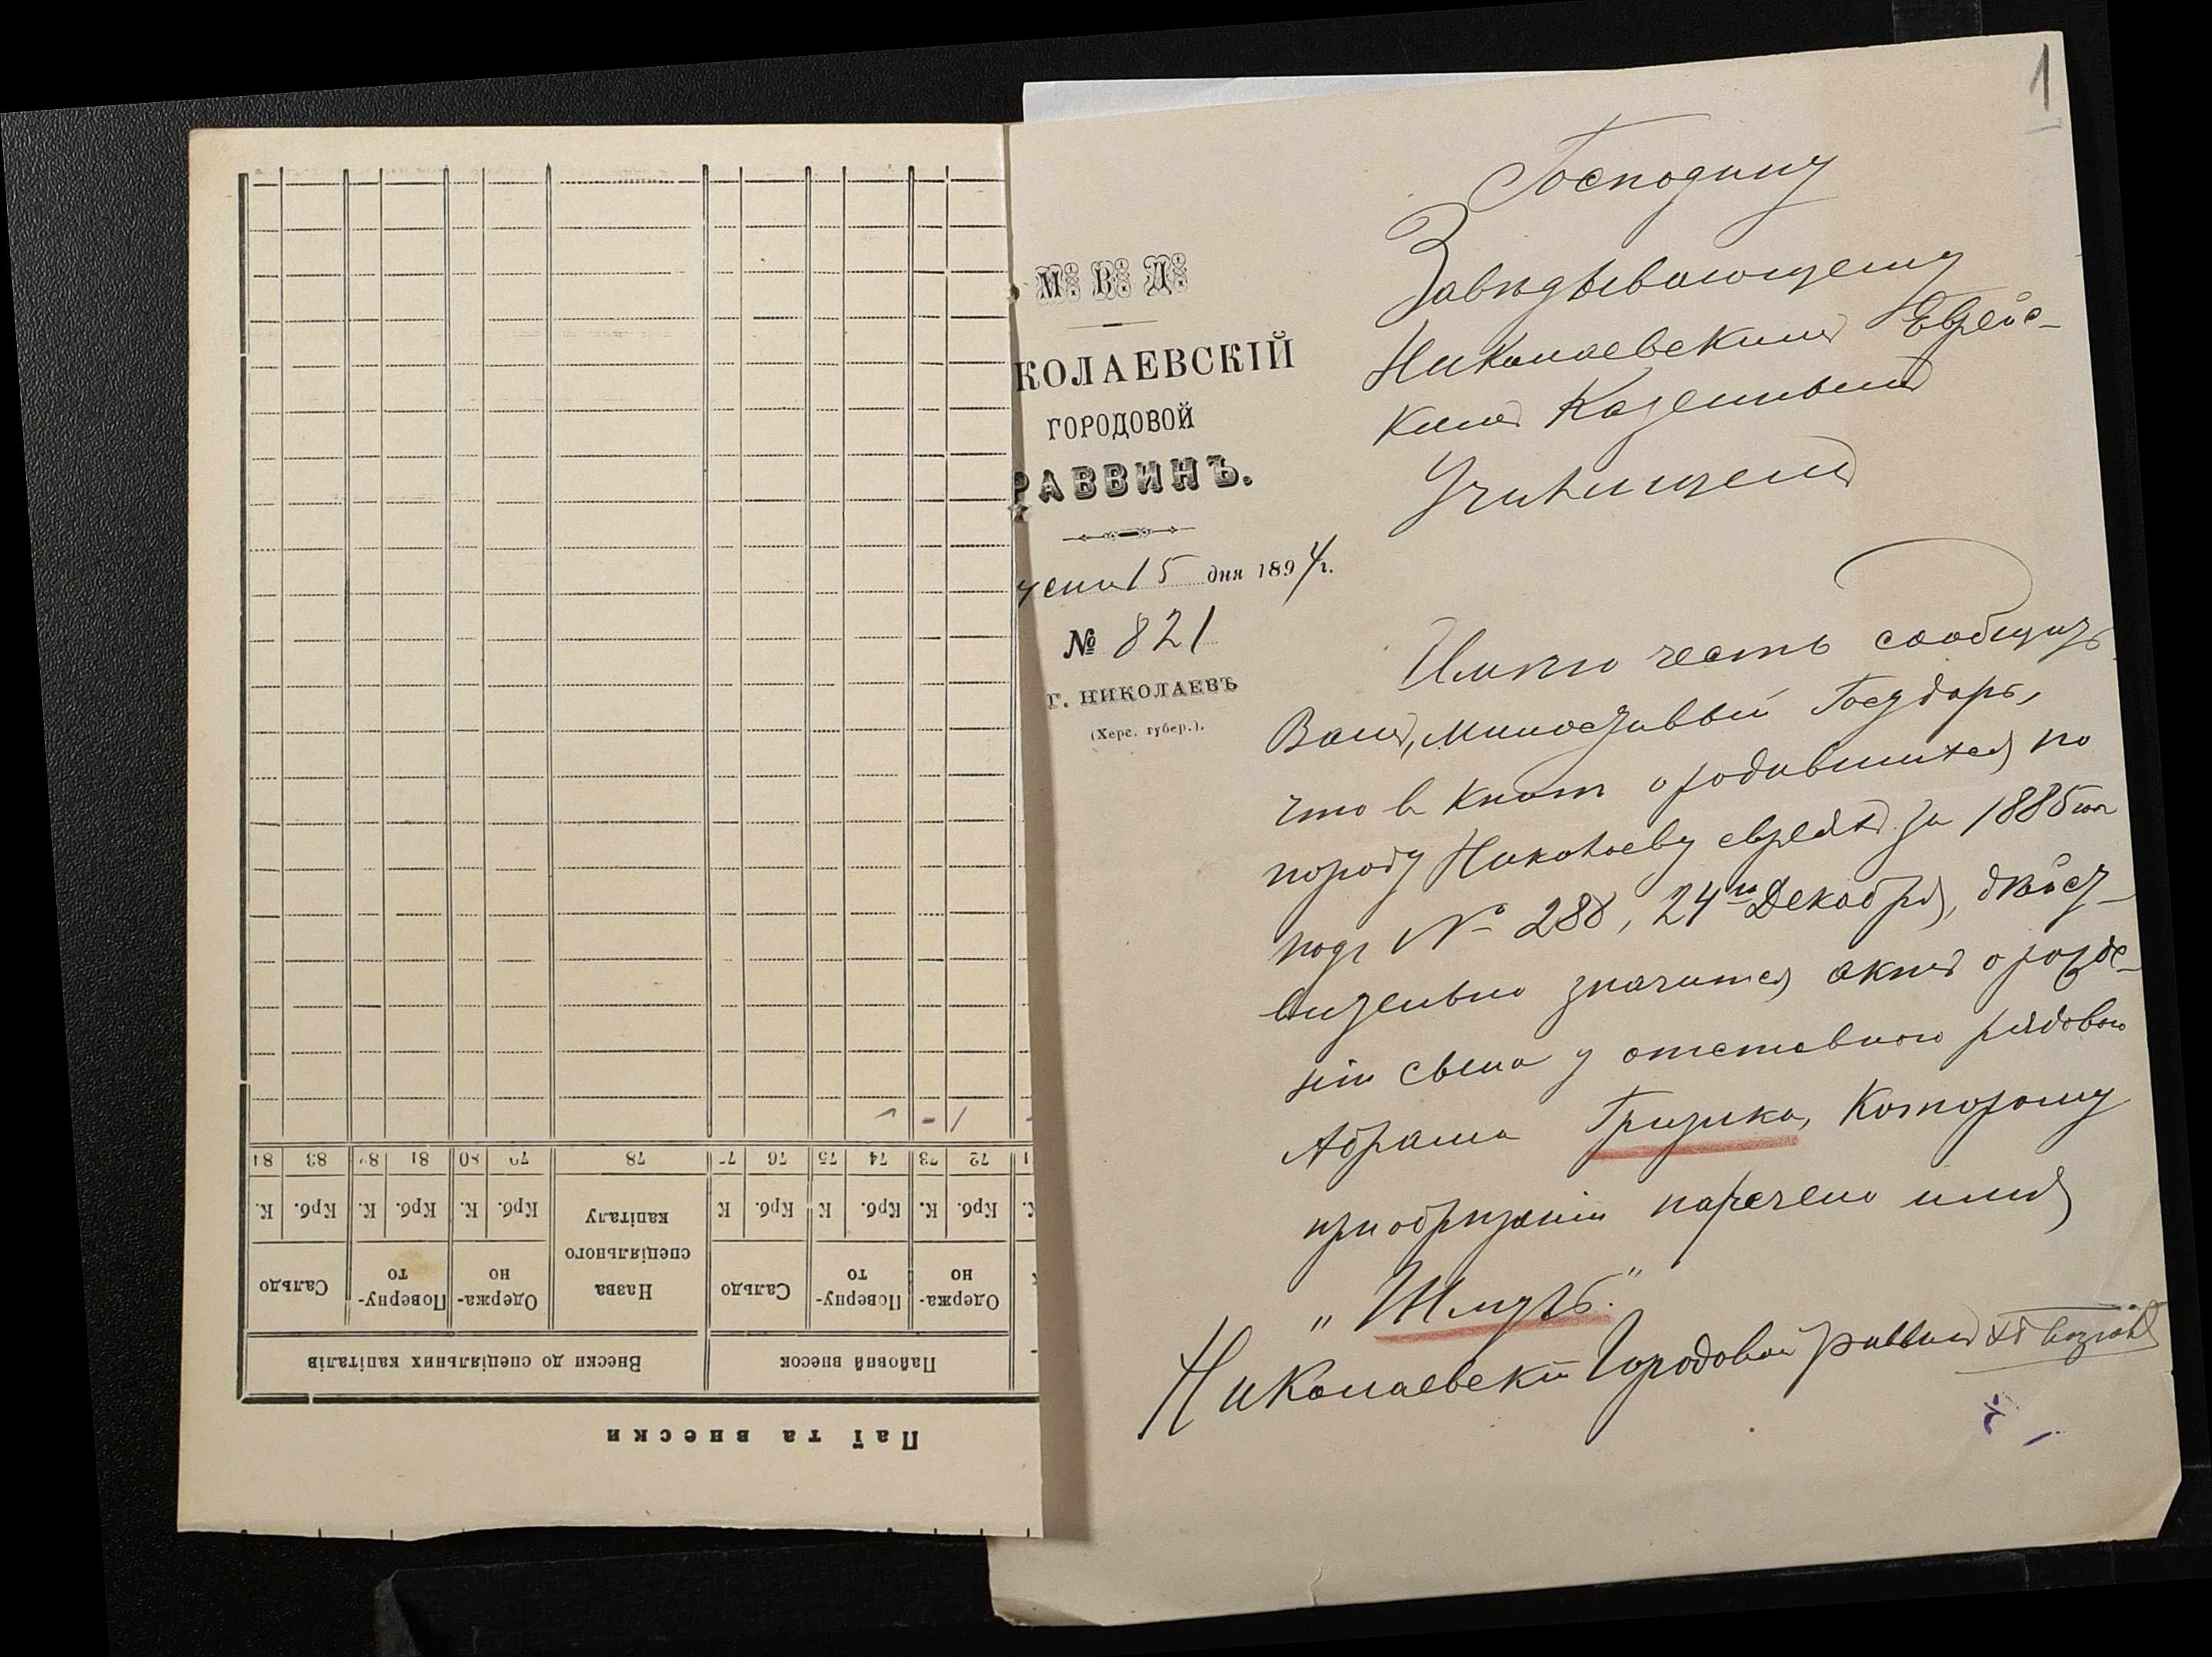 1
М. В. Д.
КОЛАЕВСКІЙ
ГОРОДОВОЙ
РАВВИНЪ.
15 дня 1894 г.
№ 821
г. НИКОЛАЕВЪ
(Херс. губер.).
Господину
Завѣдывающему
Николаевскимъ Еврейс-
кимъ Казеннымъ
Училищемъ
Имѣю честь сообщить
Вамъ, Милостивый Государь,
что въ книгѣ о родившихся по
городу Николаеву евреяхъ за 1885 годъ
подъ № 288, 24го Декабря, дѣйст-
вительно значится актъ о рожде-
ніи сына у отставного рядового
Абрама
Которому
при обрѣзаніи наречено имя
Николаевскій Городовой раввинъ
Паї та внески
Пайовий внесок
Внески до спеціяльних капіталів
Одержа-
но
Поверну-
то
Сальдо
Назва
спеціяльного
капіталу
Одержа-
но
Поверну-
то
Сальдо
Крб. К. Крб. К Крб. К Крб. К. Крб. К. Крб. К.
72 73 74 75 76 77 78 79 80 81 82 83 84